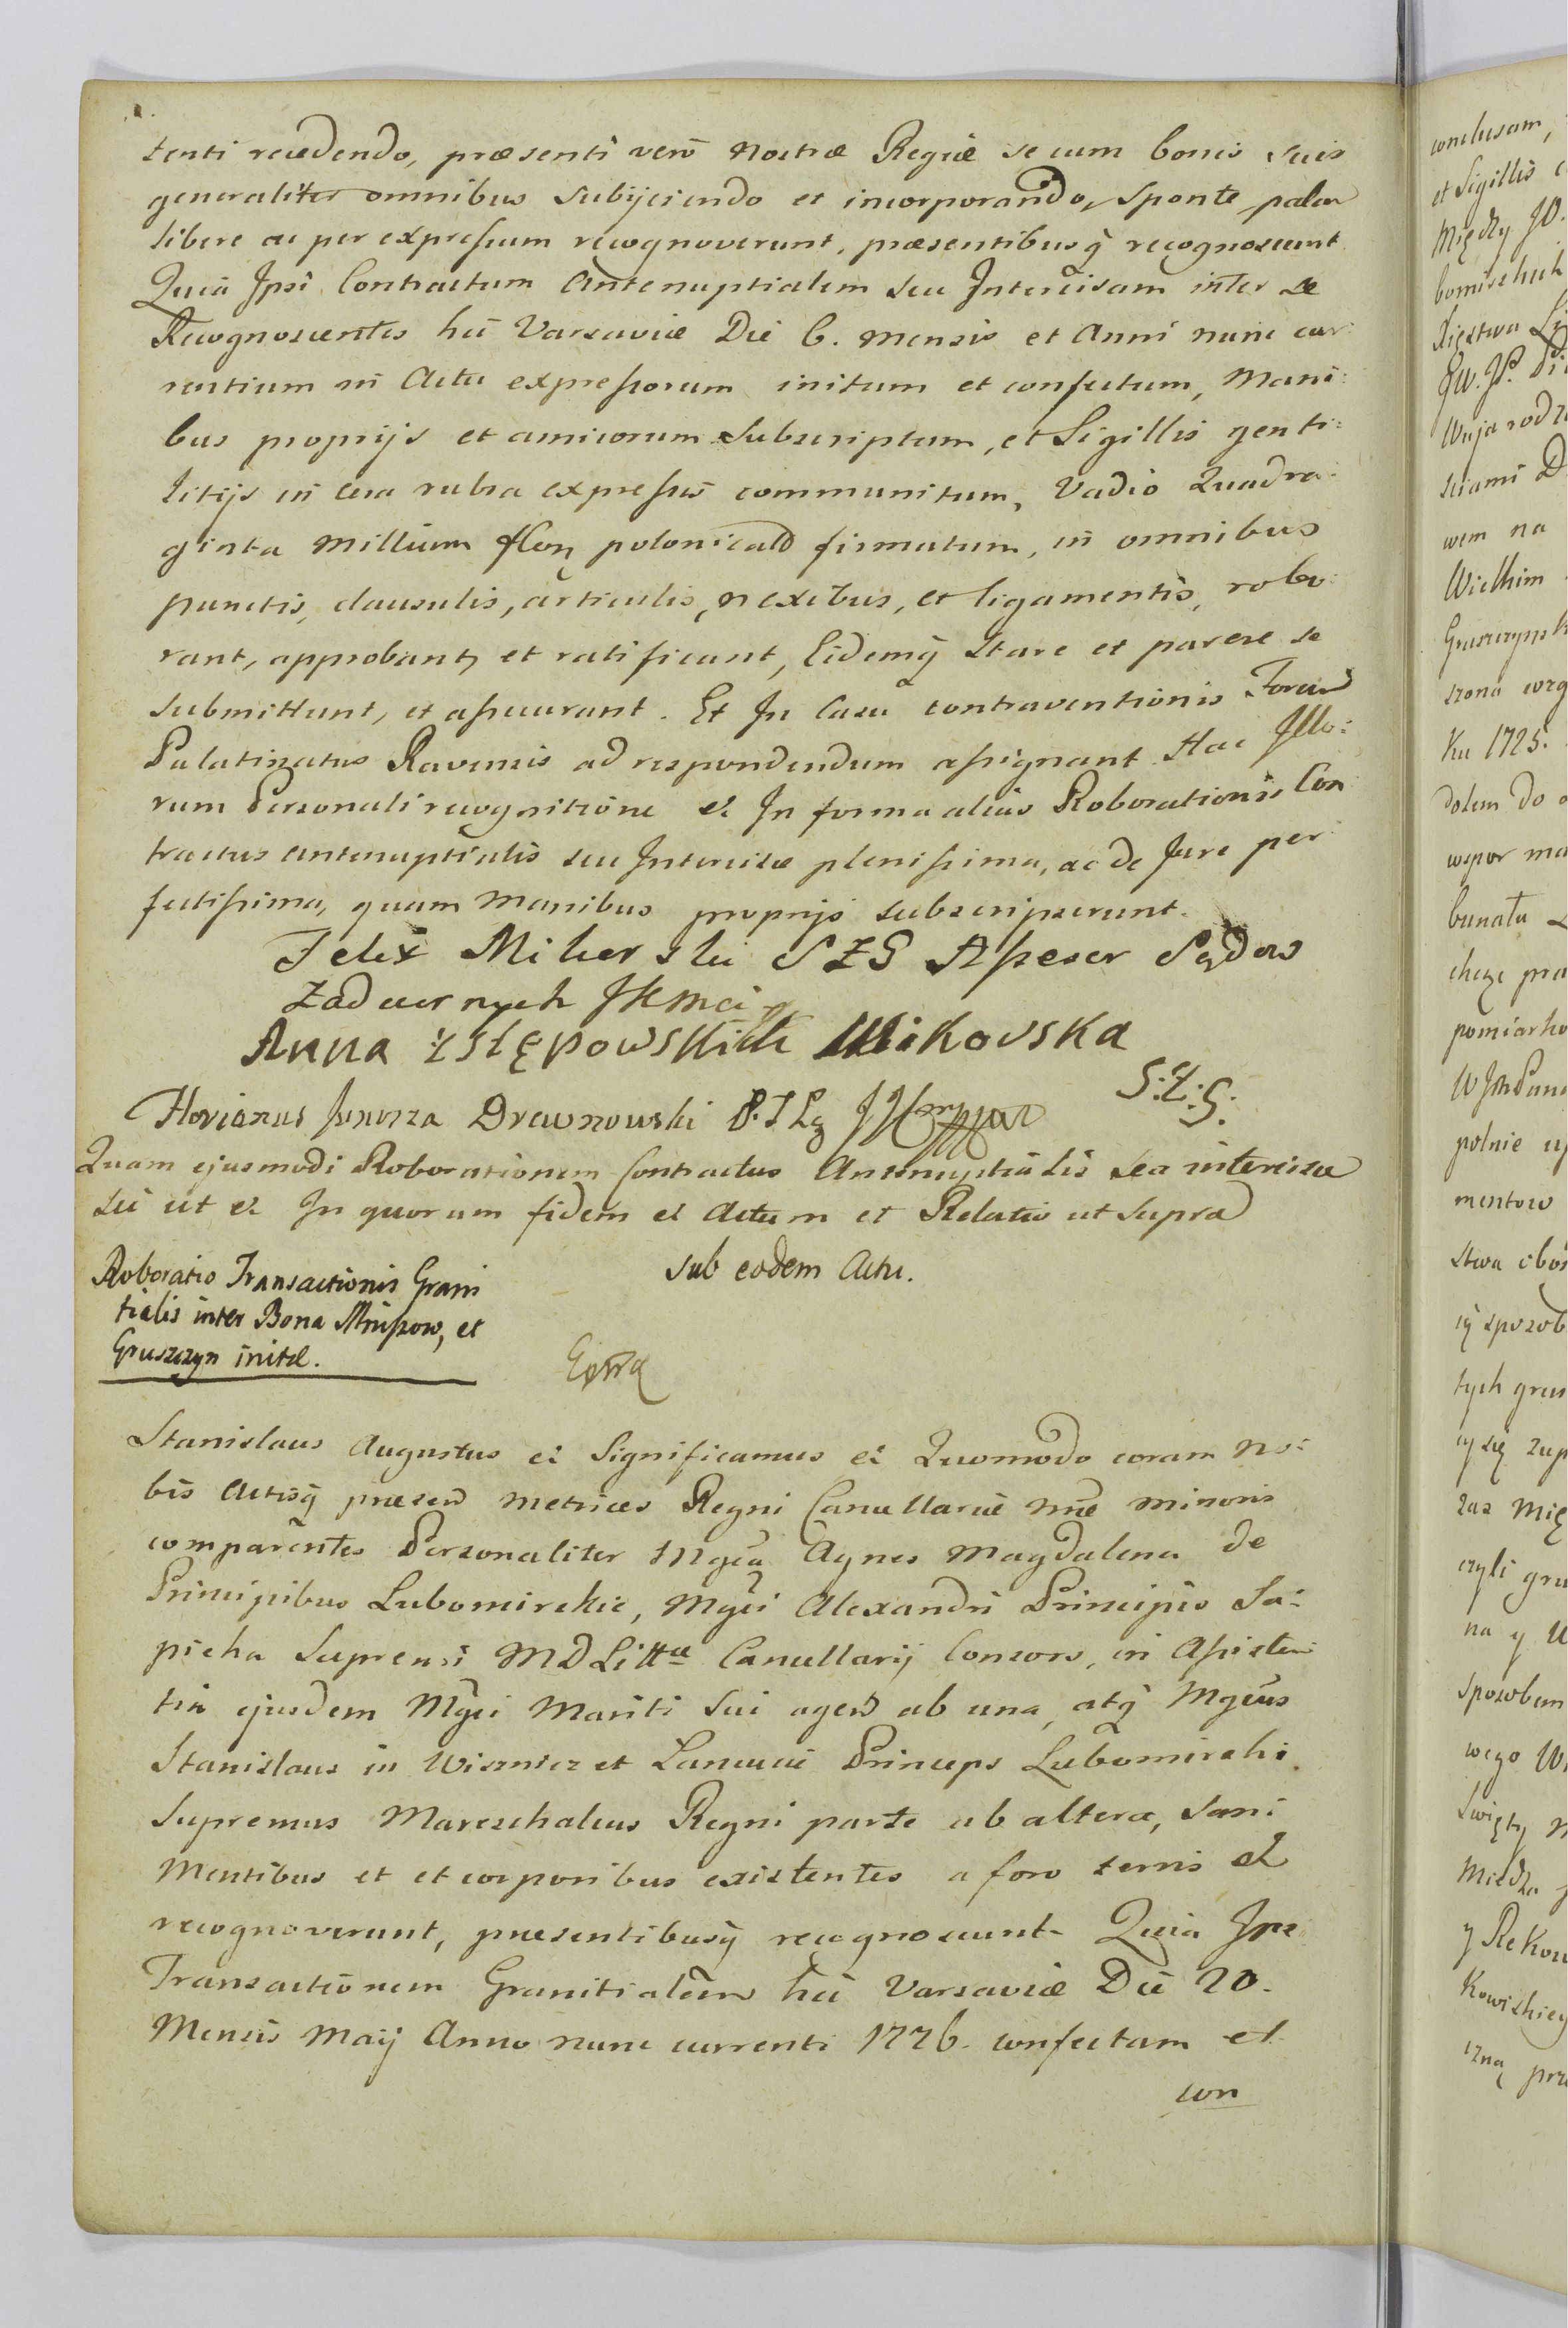 tenti recedendo, præsenti vero Nostræ Regiæ se cum bonis suis
generaliter omnibus subijciendo et incorporando, sponte, palam
libere ac per expressum recognoverunt, præsentibusq̃ recognoscunt
Quia Ipsi Contractum Antenuptialem seu Intercisam inter se
Recognoscentes hic Varsaviæ Die 6. mensis et Anni nunc cur:
rentium in Actu expressorum initum et confectum, Mani:
bus proprijs et amicorum subscriptum, et Sigillis genti:
litijs in cera rubra expressis communitum, Vadio Quadra:
ginta Millium flor polonicald firmatum, in omnibus
punctis, clausulis, articulis, nexibus, et ligamentis, robo:
rant, approbant, et ratificant, Eidemq̃ stare et parere se
submittunt, et assecurant. Et In Casu contraventionis Forum
Palatinatus Ravensis ad respondendum assignant Hac Illo:
rum Personali recognitione et In forma alias Roborationis Con
tractus antenuptialis seu Intercisæ plenissima, ac de Jure per
fectissima, quam Manibus proprijs subscripserunt.
Felix Mikorski SZG Assesor Sądow
Zadwornych JKMci
Anna z Stępowskich Mikorska
S:Z:G:
Florianus Junosza Drewnowski
Quam ejusmodi Roborationem Contractus Antenuptialis seu intercisæ
sic ut et In quorum fidem et Actum et Relatio ut supra
Roboratio Transactionis Grani
tialis inter Bona Mniszow, et
Gruszczyn initæ.
sub eodem Actu.
Stanislaus Augustus et Significamus et Quomodo coram No:
bis Actisq̃ præsend Metrices Regni Cancellariæ nrae minoris
comparentes Personaliter Mgca Agnes Magdalena de
Principibus Lubomirskie, Mgci Alexandri Principis Sa:
pieha Supremi MDLittæ Cancellarij Consors, in Assisten
tia ejusdem Mgci Mariti sui agend ab una, atq̃ Mgcus
Stanislaus in Wisznicz et Lancuci Princeps Lubomirski
Supremus Mareschalcus Regni parte ab altera, sani
Mentibus et et corporibus existentes a foro ternis et
recognoverunt, præsentibusq̃ recognoscunt Quia Ipse
Transactionem Granitialem hic Varsaviæ Die 20.
Mensis Maij Anno nunc currenti 1776. confectam et
con
conclusam,
et Sigillis
Między JO.
Xięstwa
Wuja
wem na
Wielkim
Ku 1725.
dolem do
bunatu
chczc
pomiarko
polnie
mentow
stwa
tych
ry się
zas
czyli
na y
sposobem
wego
Swięty
Miedza
czną